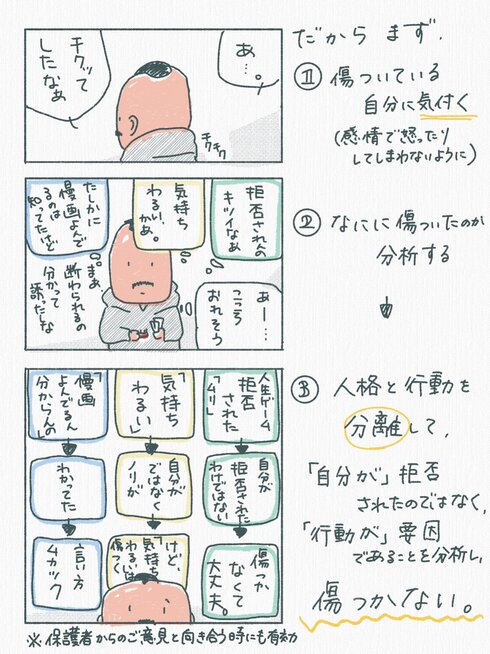 だから まず、
① 傷ついている
自分に気付く
(感情で怒ったり
してしまわないように)
あ…。
チクッて
したなぁ
チクチク
② なにに傷ついたのか
分析する
拒否されんの
キツイなぁ
気持ち
わるい、
かぁ。
たしかに
漫画よんで
るのは
知ってたけど
まぁ、
断わられるの
分かって
誘ったしな
あー…
こころ
おれそう
③ 人格と行動を
分離して、
「自分が」拒否
されたのではなく、
「行動が」要因
であることを分析し、
傷つかない。
人生ゲーム
拒否
された
「ムリ」
自分が
拒否された
わけではない
傷つか
なくて
大丈夫。
「気持ち
わるい」
自分が
ではなく
ノリが
けど、
「気持ち
わるい」は
傷つくて
「漫画
よんでるん
分からんの」
わかってた
言い方
ムカツク
※保護者からのご意見と向き合う時にも有効